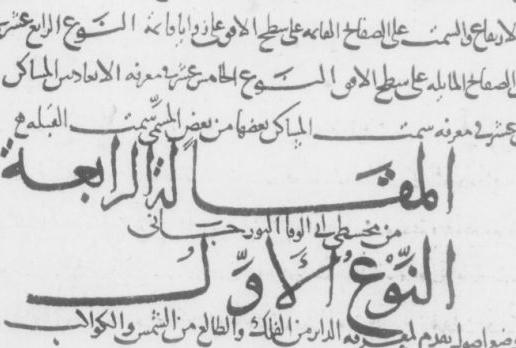 الارتفاع والسمت على الصفائح القائمة على سطح الافق على زوايا قائمة النـــوع الرابع عشر
الصفائح المايله على سطح الافق النـــوع الخامس عشر فى معرفه الابعاد بين المساكن
عشر فى معرفه سمت المساكن بعضها من بعض المسمّى سمت القبله
المقـــالة الرابعة
من مجسطى ابى الوفا البوزجـــانى
النَّوْعُ الأَوَّلُ
وضع اصول تقدم لمعرفه الداير من الفلك والطالع من الشمس والكواكب